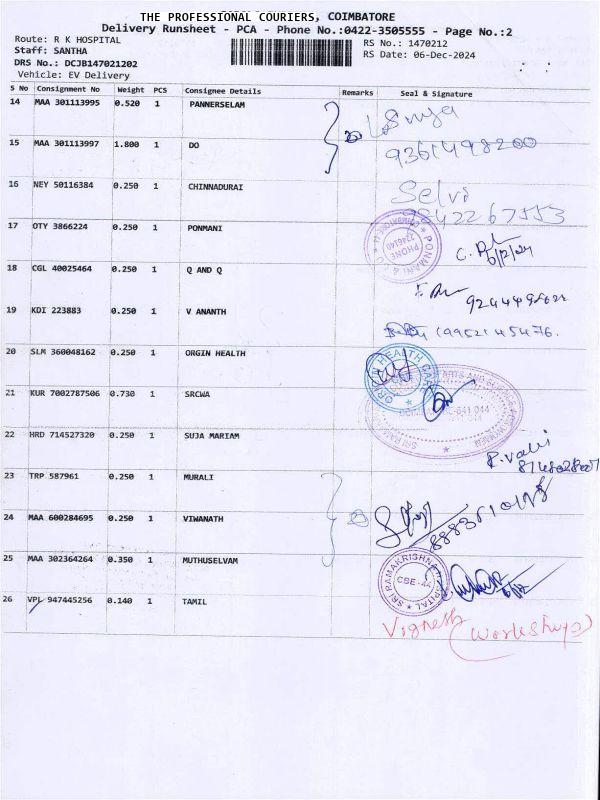 THE PROFESSIONAL COURIERS, COIMBATORE
Delivery Runsheet - PCA - Phone No.:0422-3505555 - Page No.:2
Route: R K HOSPITAL
RS No.: 1470212
Staff: SANTHA
RS Date: 06-Dec-2024
DRS No.: DCJB147021202
Vehicle: EV Delivery
S No Consignment No Weight PCS Consignee Details Remarks Seal & Signature
14 MAA 301113995 0.520 1 PANNERSELAM
15 MAA 301113997 1.800 1 DO 9361498200
16 NEY 50116384 0.250 1 CHINNADURAI Selvi
17 OTY 3866224 0.250 1 PONMANI
18 CGL 40025464 0.250 1 Q AND Q
19 KDI 223883 0.250 1 V ANANTH
20 SLM 360048162 0.250 1 ORGIN HEALTH
21 KUR 7002787506 0.730 1 SRCWA
22 HRD 714527320 0.250 1 SUJA MARIAM
23 TRP 587961 0.250 1 MURALI
24 MAA 600284695 0.250 1 VIWANATH
25 MAA 302364264 0.350 1 MUTHUSELVAM
SRI RAMAKRISHNA HOSPITAL
CBE-44
26 VPL 947445256 0.140 1 TAMIL
Vignesh